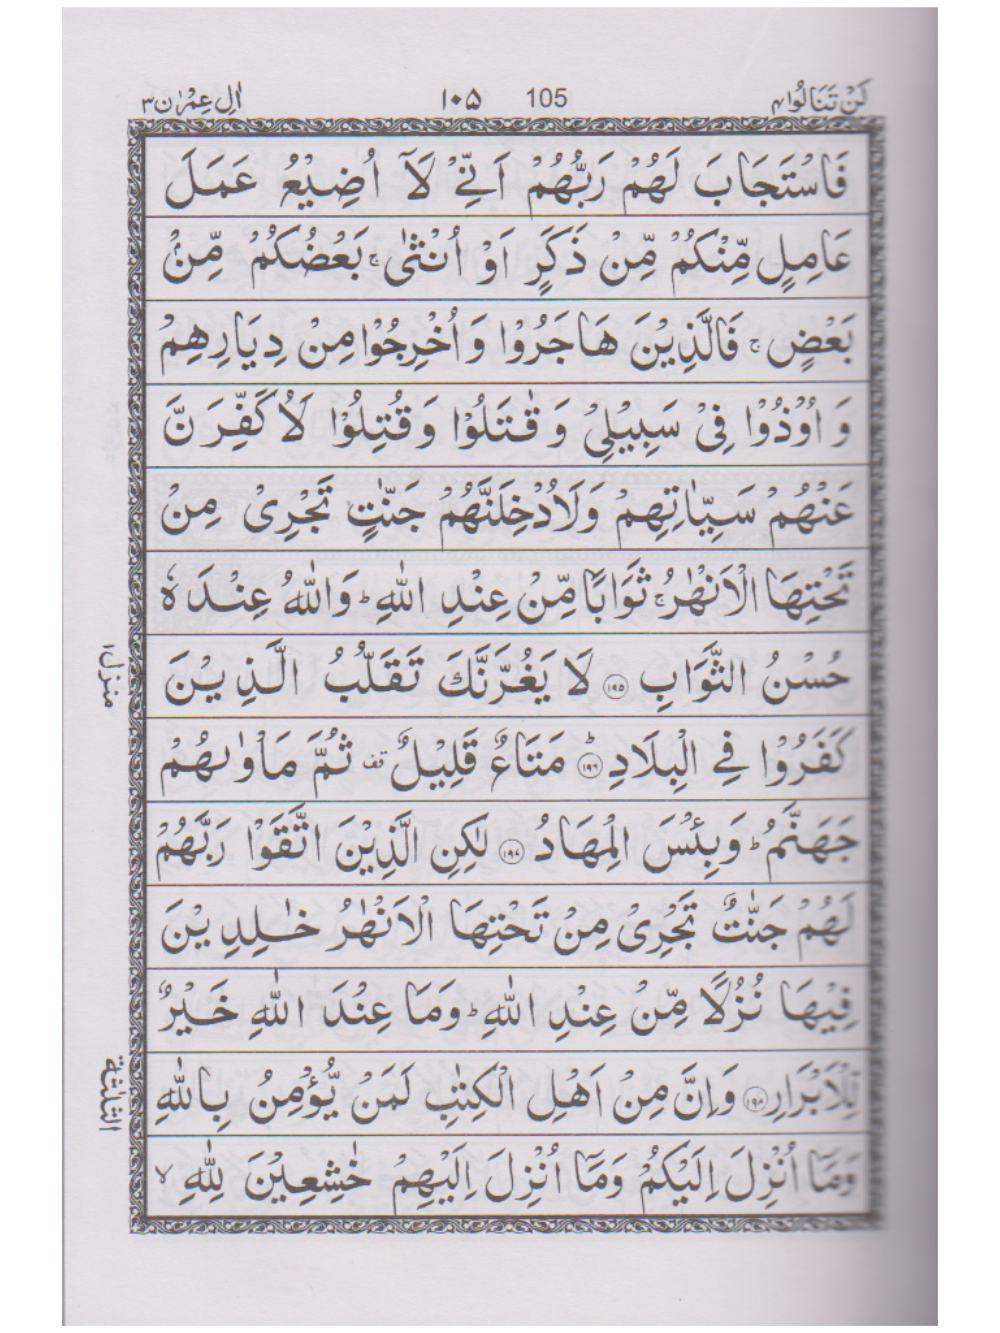 لَنْ تَنَالُوا ٤ ١٠٥ 105 اٰلِ عِمْرٰن ٣
فَاسْتَجَابَ لَهُمْ رَبُّهُمْ اَنِّیْ لَاۤ اُضِیْعُ عَمَلَ
عَامِلٍ مِّنْكُمْ مِّنْ ذَكَرٍ اَوْ اُنْثٰی ۚ بَعْضُكُمْ مِّنْۢ
بَعْضٍ ۚ فَالَّذِیْنَ هَاجَرُوْا وَ اُخْرِجُوْا مِنْ دِیَارِهِمْ
وَ اُوْذُوْا فِیْ سَبِیْلِیْ وَ قٰتَلُوْا وَ قُتِلُوْا لَاُكَفِّرَنَّ
عَنْهُمْ سَیِّاٰتِهِمْ وَلَاُدْخِلَنَّهُمْ جَنّٰتٍ تَجْرِیْ مِنْ
تَحْتِهَا الْاَنْهٰرُ ۚ ثَوَابًا مِّنْ عِنْدِ اللّٰهِ ؕ وَاللّٰهُ عِنْدَهٗ
حُسْنُ الثَّوَابِ ۝١٩٥ لَا یَغُرَّنَّكَ تَقَلُّبُ الَّذِیْنَ
كَفَرُوْا فِی الْبِلَادِ ؕ۝١٩٦ مَتَاعٌ قَلِیْلٌ قف ثُمَّ مَاْوٰىهُمْ
جَهَنَّمُ ؕ وَبِئْسَ الْمِهَادُ ۝١٩٧ لٰكِنِ الَّذِیْنَ اتَّقَوْا رَبَّهُمْ
لَهُمْ جَنّٰتٌ تَجْرِیْ مِنْ تَحْتِهَا الْاَنْهٰرُ خٰلِدِیْنَ
فِیْهَا نُزُلًا مِّنْ عِنْدِ اللّٰهِ ؕ وَمَا عِنْدَ اللّٰهِ خَیْرٌ
لِّلْاَبْرَارِ ۝١٩٨ وَاِنَّ مِنْ اَهْلِ الْكِتٰبِ لَمَنْ یُّؤْمِنُ بِاللّٰهِ
وَمَاۤ اُنْزِلَ اِلَیْكُمْ وَمَاۤ اُنْزِلَ اِلَیْهِمْ خٰشِعِیْنَ لِلّٰهِ ۙ
منزل ١
الثلٰثة